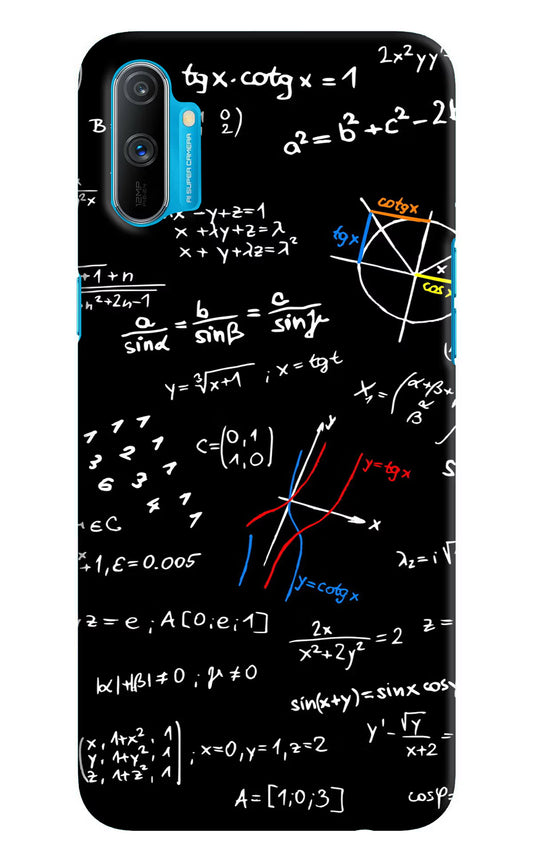 tgx·cotgx=1
2x²yy'
B
0
2)
a²=b²+c²-2b
AI SUPER CAMERA
12MP
x-y+z=1
x+λy+z=λ
x+y+λz=λ²
cotgx
tgx
x
cosx
+1+n
n²+2n-1
a/sinα = b/sinβ = c/sinγ
y=∛x+1 ; x=tgt
X₁=(α+β+
α
β
1 1 1
3 2 1
6 3 1
4 1
C=(0,1
1,0)
y
y=tgx
x
y=cotgx
∈C
+1,ε=0.005
λ₂=i√
z=e ; A[0;e;1]
2x/x²+2y² =2
z=
|α|+|β|≠0 ; γ≠0
sin(x+y)=sinx cosy
y'-√y/x+2 =
(x, 1+x², 1
y, 1+y², 1
z, 1+z², 1) ; x=0,y=1,z=2
A=[1;0;3]
cosφ=